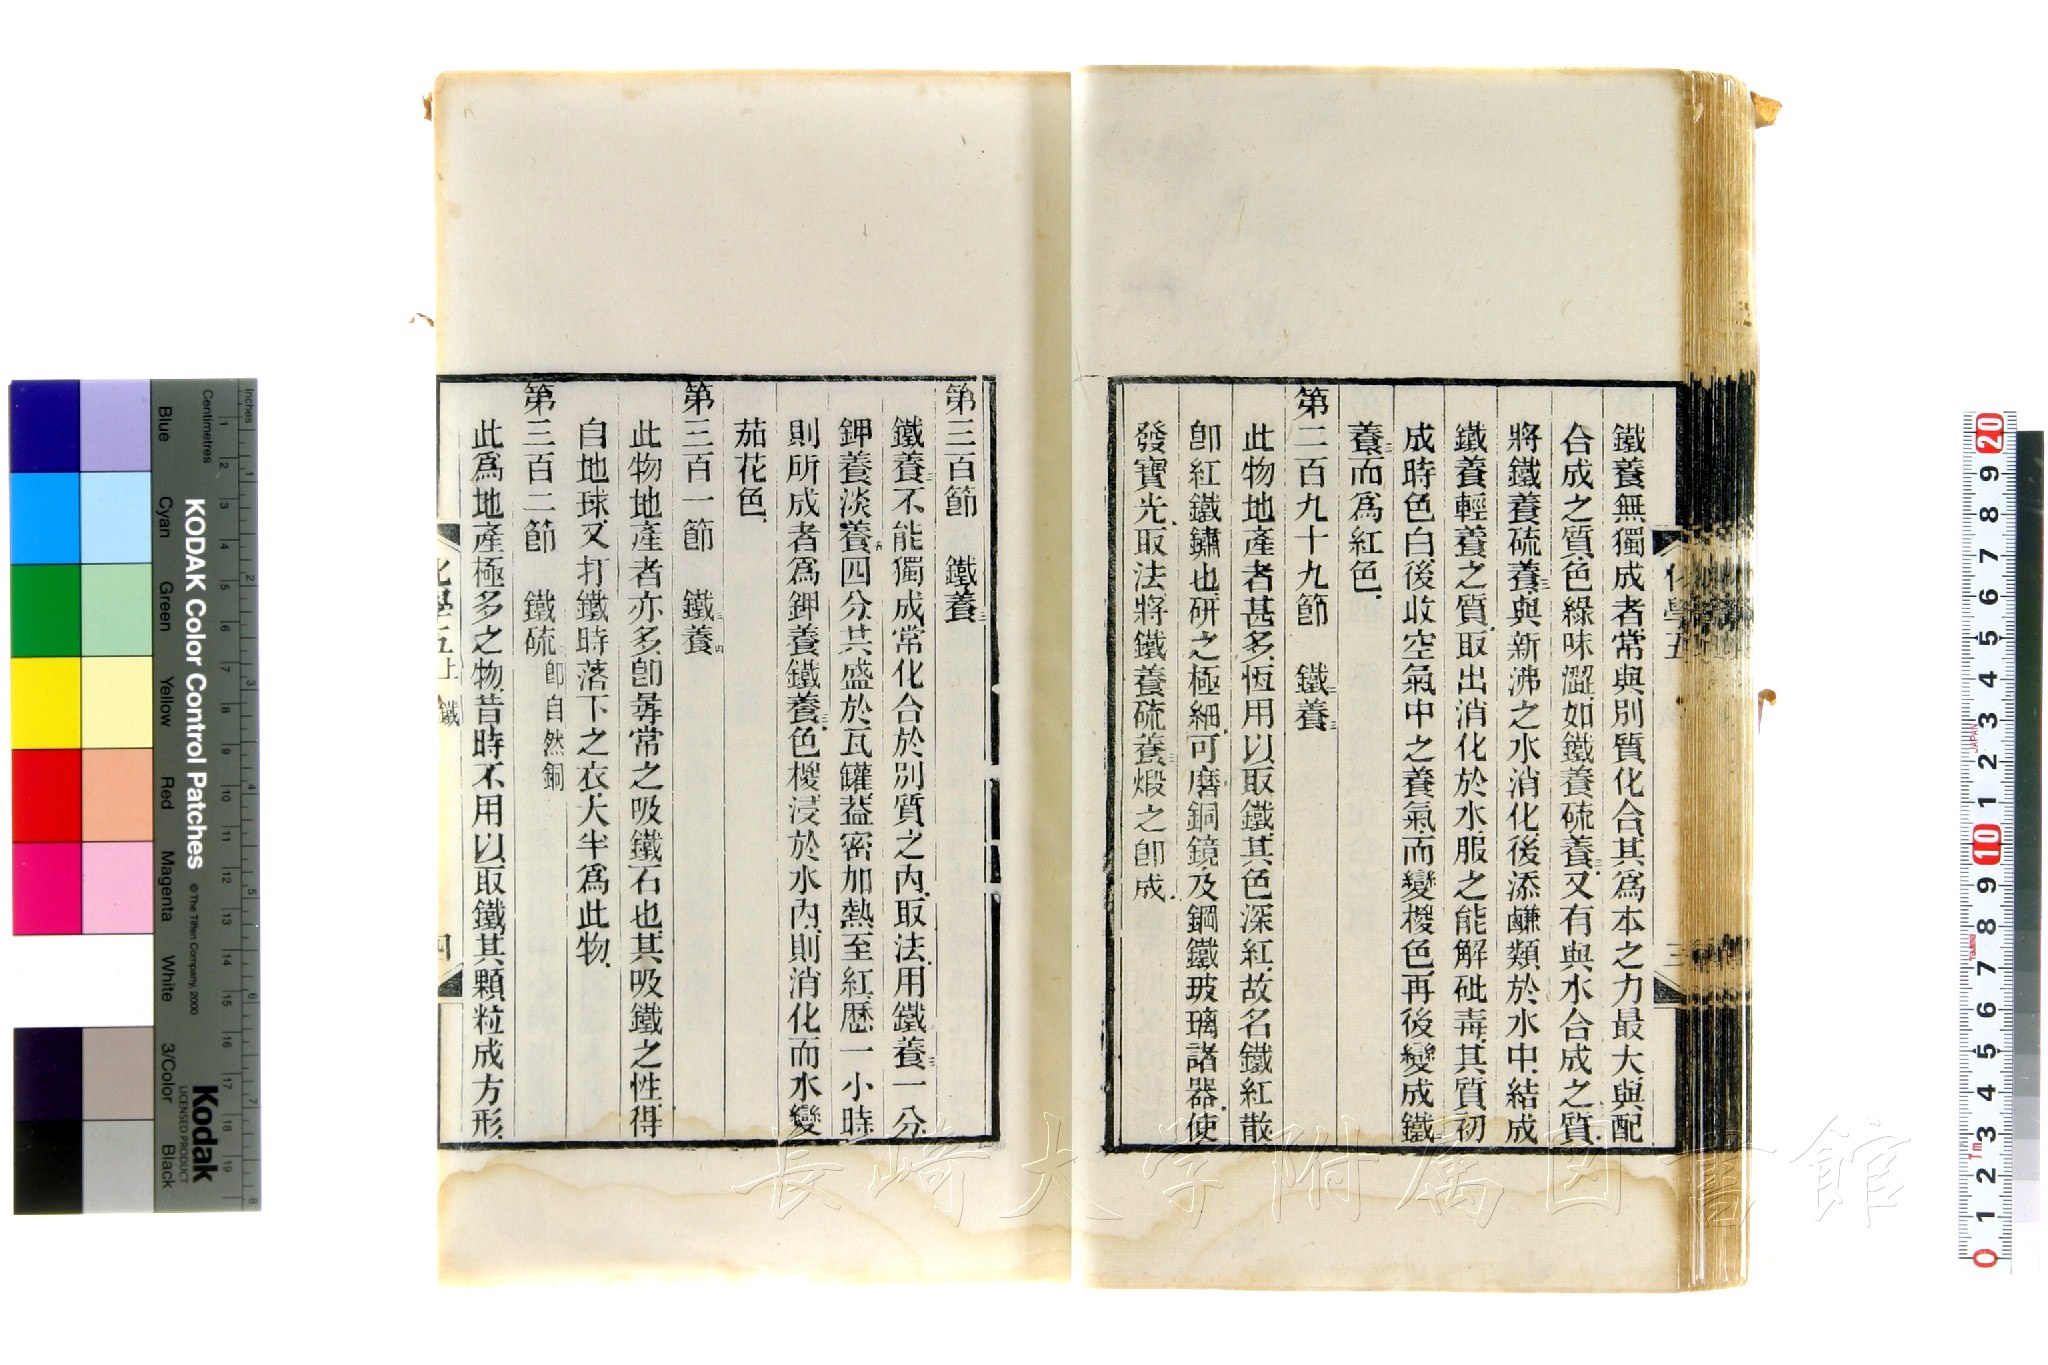 鐵養無獨成者常與別質化合其爲本之力最大與配
合成之質色綠味澀如鐵養硫養三又有與水合成之質
將鐵養硫養三與新沸之水消化後添鹻類於水中結成
鐵養輕養之質取出消化於水服之能解砒毒其質初
成時色白後收空氣中之養氣而變椶色再後變成鐵二
養三而爲紅色
第二百九十九節　鐵二養三
此物地產者甚多恆用以取鐵其色深紅故名鐵紅散
卽紅鐵鏽也研之極細可磨銅鏡及鋼鐵玻璃諸器使
發寶光取法將鐵養硫養三煅之卽成
化學五
三
第三百節　鐵養三
鐵養三不能獨成常化合於別質之內取法用鐵二養三一分
鉀養淡養五四分共盛於瓦罐葢密加熱至紅歷一小時
則所成者爲鉀養鐵養三色椶浸於水內則消化而水變
茄花色
第三百一節　鐵三養四
此物地產者亦多卽尋常之吸鐵石也其吸鐵之性得
自地球又打鐵時落下之衣大半爲此物
第三百二節　鐵硫二卽自然銅
此爲地產極多之物昔時不用以取鐵其顆粒成方形
化學五上　鐵
四
長崎大学附属図書館
KODAK Color Control Patches
© The Tiffen Company, 2000
Kodak
LICENSED PRODUCT
Blue Cyan Green Yellow Red Magenta White 3/Color Black
Inches 1 2 3 4 5 6 7 8
Centimetres 1 2 3 4 5 6 7 8 9 10 11 12 13 14 15 16 17 18 19
0 1 2 3 4 5 6 7 8 9 10 1 2 3 4 5 6 7 8 9 20
JAPAN
1m